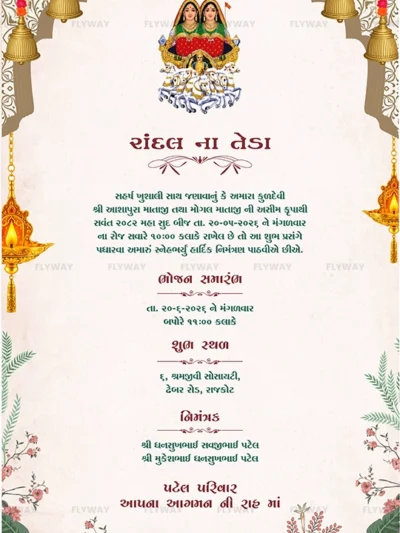 FLYWAY FLYWAY FLYWAY
રાંદલ ના તેડા
સહર્ષ ખુશાલી સાથ જણાવાનું કે અમારા કુળદેવી
શ્રી આશાપુરા માતાજી તથા મોગલ માતાજી ની અસીમ કૃપાથી
સવંત ૨૦૮૨ મહા સુદ બીજ તા. ૨૦-૦૫-૨૦૨૬ ને મંગળવાર
ના રોજ સવારે ૧૦:૦૦ કલાકે રાખેલ છે તો આ શુભ પ્રસંગે
પધારવા અમારું સ્નેહભર્યું હાર્દિક નિમંત્રણ પાઠવીએ છીએ.
FLYWAY FLYWAY FLYWAY FLYWAY
ભોજન સમારંભ
તા. ૨૦-૬-૨૦૨૬ ને મંગળવાર
બપોરે ૧૧:૦૦ કલાકે
શુભ સ્થળ
૬, શ્રમજીવી સોસાયટી,
ઢેબર રોડ, રાજકોટ
નિમંત્રક
શ્રી ધનસુખભાઈ સવજીભાઈ પટેલ
શ્રી મુકેશભાઈ ધનસુખભાઈ પટેલ
પટેલ પરિવાર
આપના આગમન ની રાહ માં
FLYWAY FLYWAY FLYWAY FLYWAY